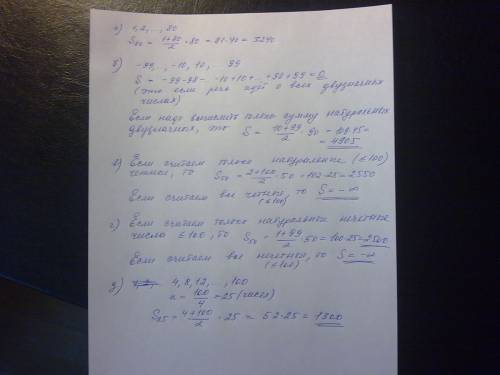 а) 1, 2, ..., 80
S₈₀ = (1+80)/2 · 80 = 81·40 = 3240
б) -99, , -10, 10, 99
S = -99-98- -10+10+...+98+99=0
(это если речь идёт о всех двузначных
числах)
Если надо вычислить только сумму натуральных
двузначных, то S = (10+99)/2 · 90 = 109·45=
= 4905
в) Если считаем только натуральные (≤100)
четные, то S₅₀ = (2+100)/2 · 50 = 102·25 = 2550
Если считаем все четные (≤100), то S = -∞
г) Если считаем только натуральные нечетные
числа ≤100, то S₅₀ = (1+99)/2 · 50 = 100·25=2500
Если считаем все нечетные (≤100), то S = -∞
д) 4, 8, 12, ..., 100
n = 100/4 = 25 (чисел)
S₂₅ = (4+100)/2 · 25 = 52·25 = 1300